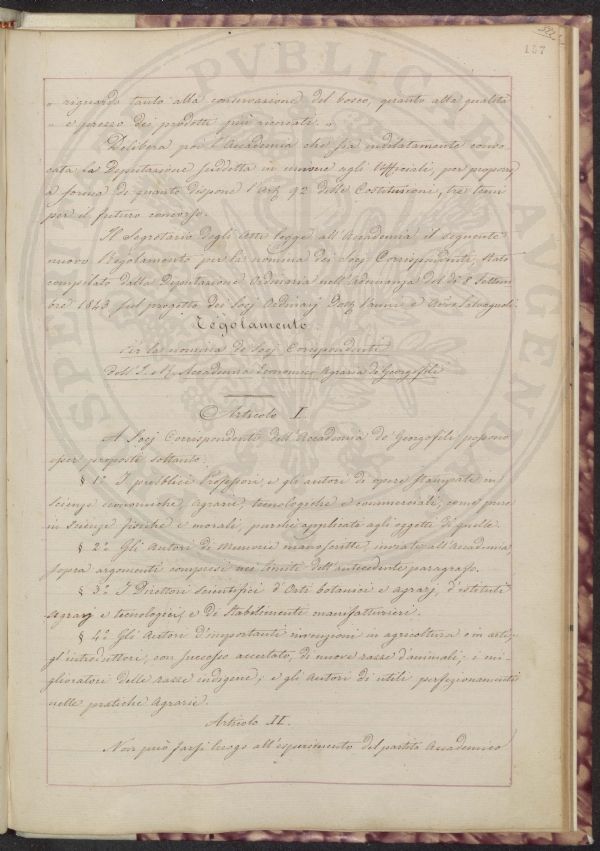 157
„ riguardo tanto alla conservazione del bosco, quanto alla qualità
„ e prezzo dei prodotti più ricercati. „
Delibera poi l'Accademia che sia indilatamente convo-
cata la Deputazione suddetta in unione agli Uffiziali, per proporre
a forma di quanto dispone l'Art. 92 delle Costituzioni, tre temi
per il futuro concorso.
Il Segretario degli Atti legge all'Accademia il seguente
nuovo Regolamento per la nomina dei Socj Corrispondenti, stato
compilato dalla Deputazione Ordinaria nell'Adunanza del dì 8 Settem-
bre 1843 sul progetto dei Socj Ordinarj Dott. e Avv. Salvagnoli.
Regolamento
Per la nomina de' Socj Corrispondenti
dell'I. e R. Accademia Economico Agraria de' Georgofili
Articolo I.
A Socj Corrispondenti dell'Accademia de' Georgofili possono
esser proposti soltanto:
§ 1.º I pubblici Professori, e gli autori di opere stampate in
scienze economiche, agrarie, tecnologiche e commerciali, come pure
in scienze fisiche e morali, purchè applicate agli oggetti di quelle.
§ 2.º Gli Autori di Memorie manoscritte, inviate all'Accademia,
sopra argomenti compresi nei limiti dell'antecedente paragrafo.
§ 3.º I Direttori scientifici d'Orti botanici e agrarj, d'istituti
agrarj e tecnologici, e di stabilimenti manifatturieri.
§ 4.º Gli Autori d'importanti invenzioni in agricoltura e in arti;
gl'introduttori, con successo accertato, di nuove razze d'animali; i mi-
glioratori delle razze indigene; e gli Autori di utili perfezionamenti
nelle pratiche Agrarie.
Articolo II.
Non può farsi luogo all'esperimento del partito Accademico
SPE PUBLICAE AUGENDAE